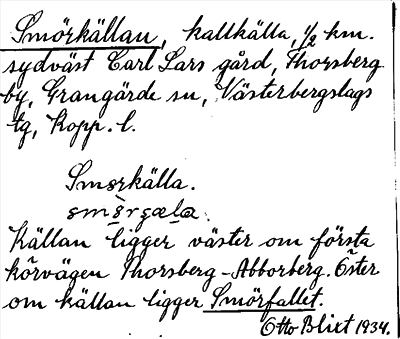 Smörkällan, kallkälla, 1/2 km.
sydväst Carl Lars gård, Thorsberg
by, Grangärde sn, Västerbergslags
tg, Kopp. l.
Smörkälla.
Källan ligger väster om första
körvägen Thorsberg-Abborberg. Öster
om källan ligger Smörfallet.
Otto Blixt 1934.